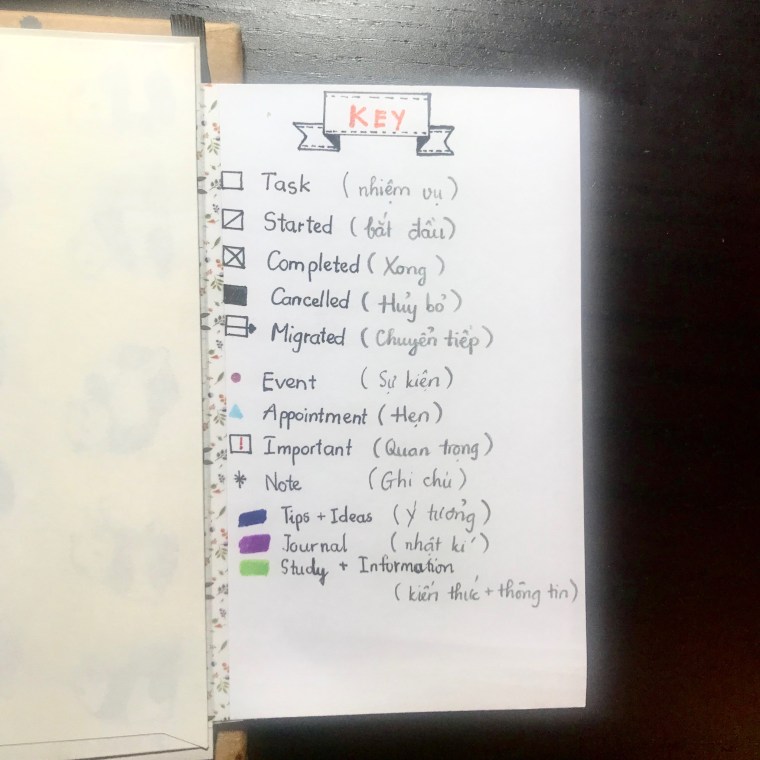 KEY
Task (nhiệm vụ)
Started (bắt đầu)
Completed (Xong)
Cancelled (Hủy bỏ)
Migrated (Chuyển tiếp)
Event (Sự kiện)
Appointment (Hẹn)
! Important (Quan trọng)
* Note (Ghi chú)
Tips + Ideas (Ý tưởng)
Journal (nhật kí)
Study + Information
(kiến thức + thông tin)